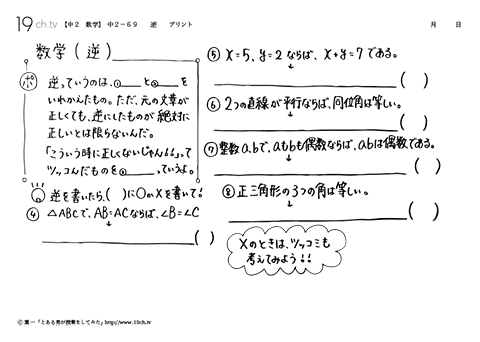 19ch.tv 【中2 数学】 中2-69 逆 プリント 月 日
数学(逆)
ポ 逆っていうのは、①____と②____を
いれかえたもの。ただ、元の文章が
正しくても、逆にしたものが絶対に
正しいとは限らないんだ。
「こういう時に正しくないじゃん!!」って
ツッコんだものを③____っていうよ。
逆を書いたら、( )に○か×を書いて!
④ △ABCで、AB=ACならば、∠B=∠C
↓
( )
⑤ x=5、y=2ならば、x+y=7である。
↓
( )
⑥ 2つの直線が平行ならば、同位角は等しい。
↓
( )
⑦ 整数a、bで、aもbも偶数ならば、abは偶数である。
↓
( )
⑧ 正三角形の3つの角は等しい。
↓
( )
×のときは、ツッコミも
考えてみよう!!
© 葉一「とある男が授業をしてみた」http://www.19ch.tv